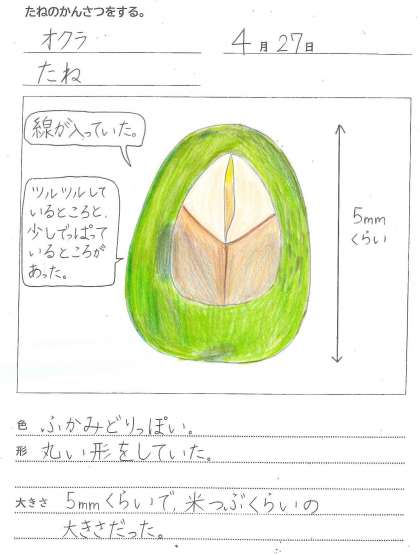 たねのかんさつをする。
オクラ
4月27日
たね
線が入っていた。
ツルツルして
いるところと、
少しでっぱって
いるところが
あった。
5mm
くらい
色 ふかみどりっぽい。
形 丸い形をしていた。
大きさ 5mmくらいで、米つぶくらいの
大きさだった。